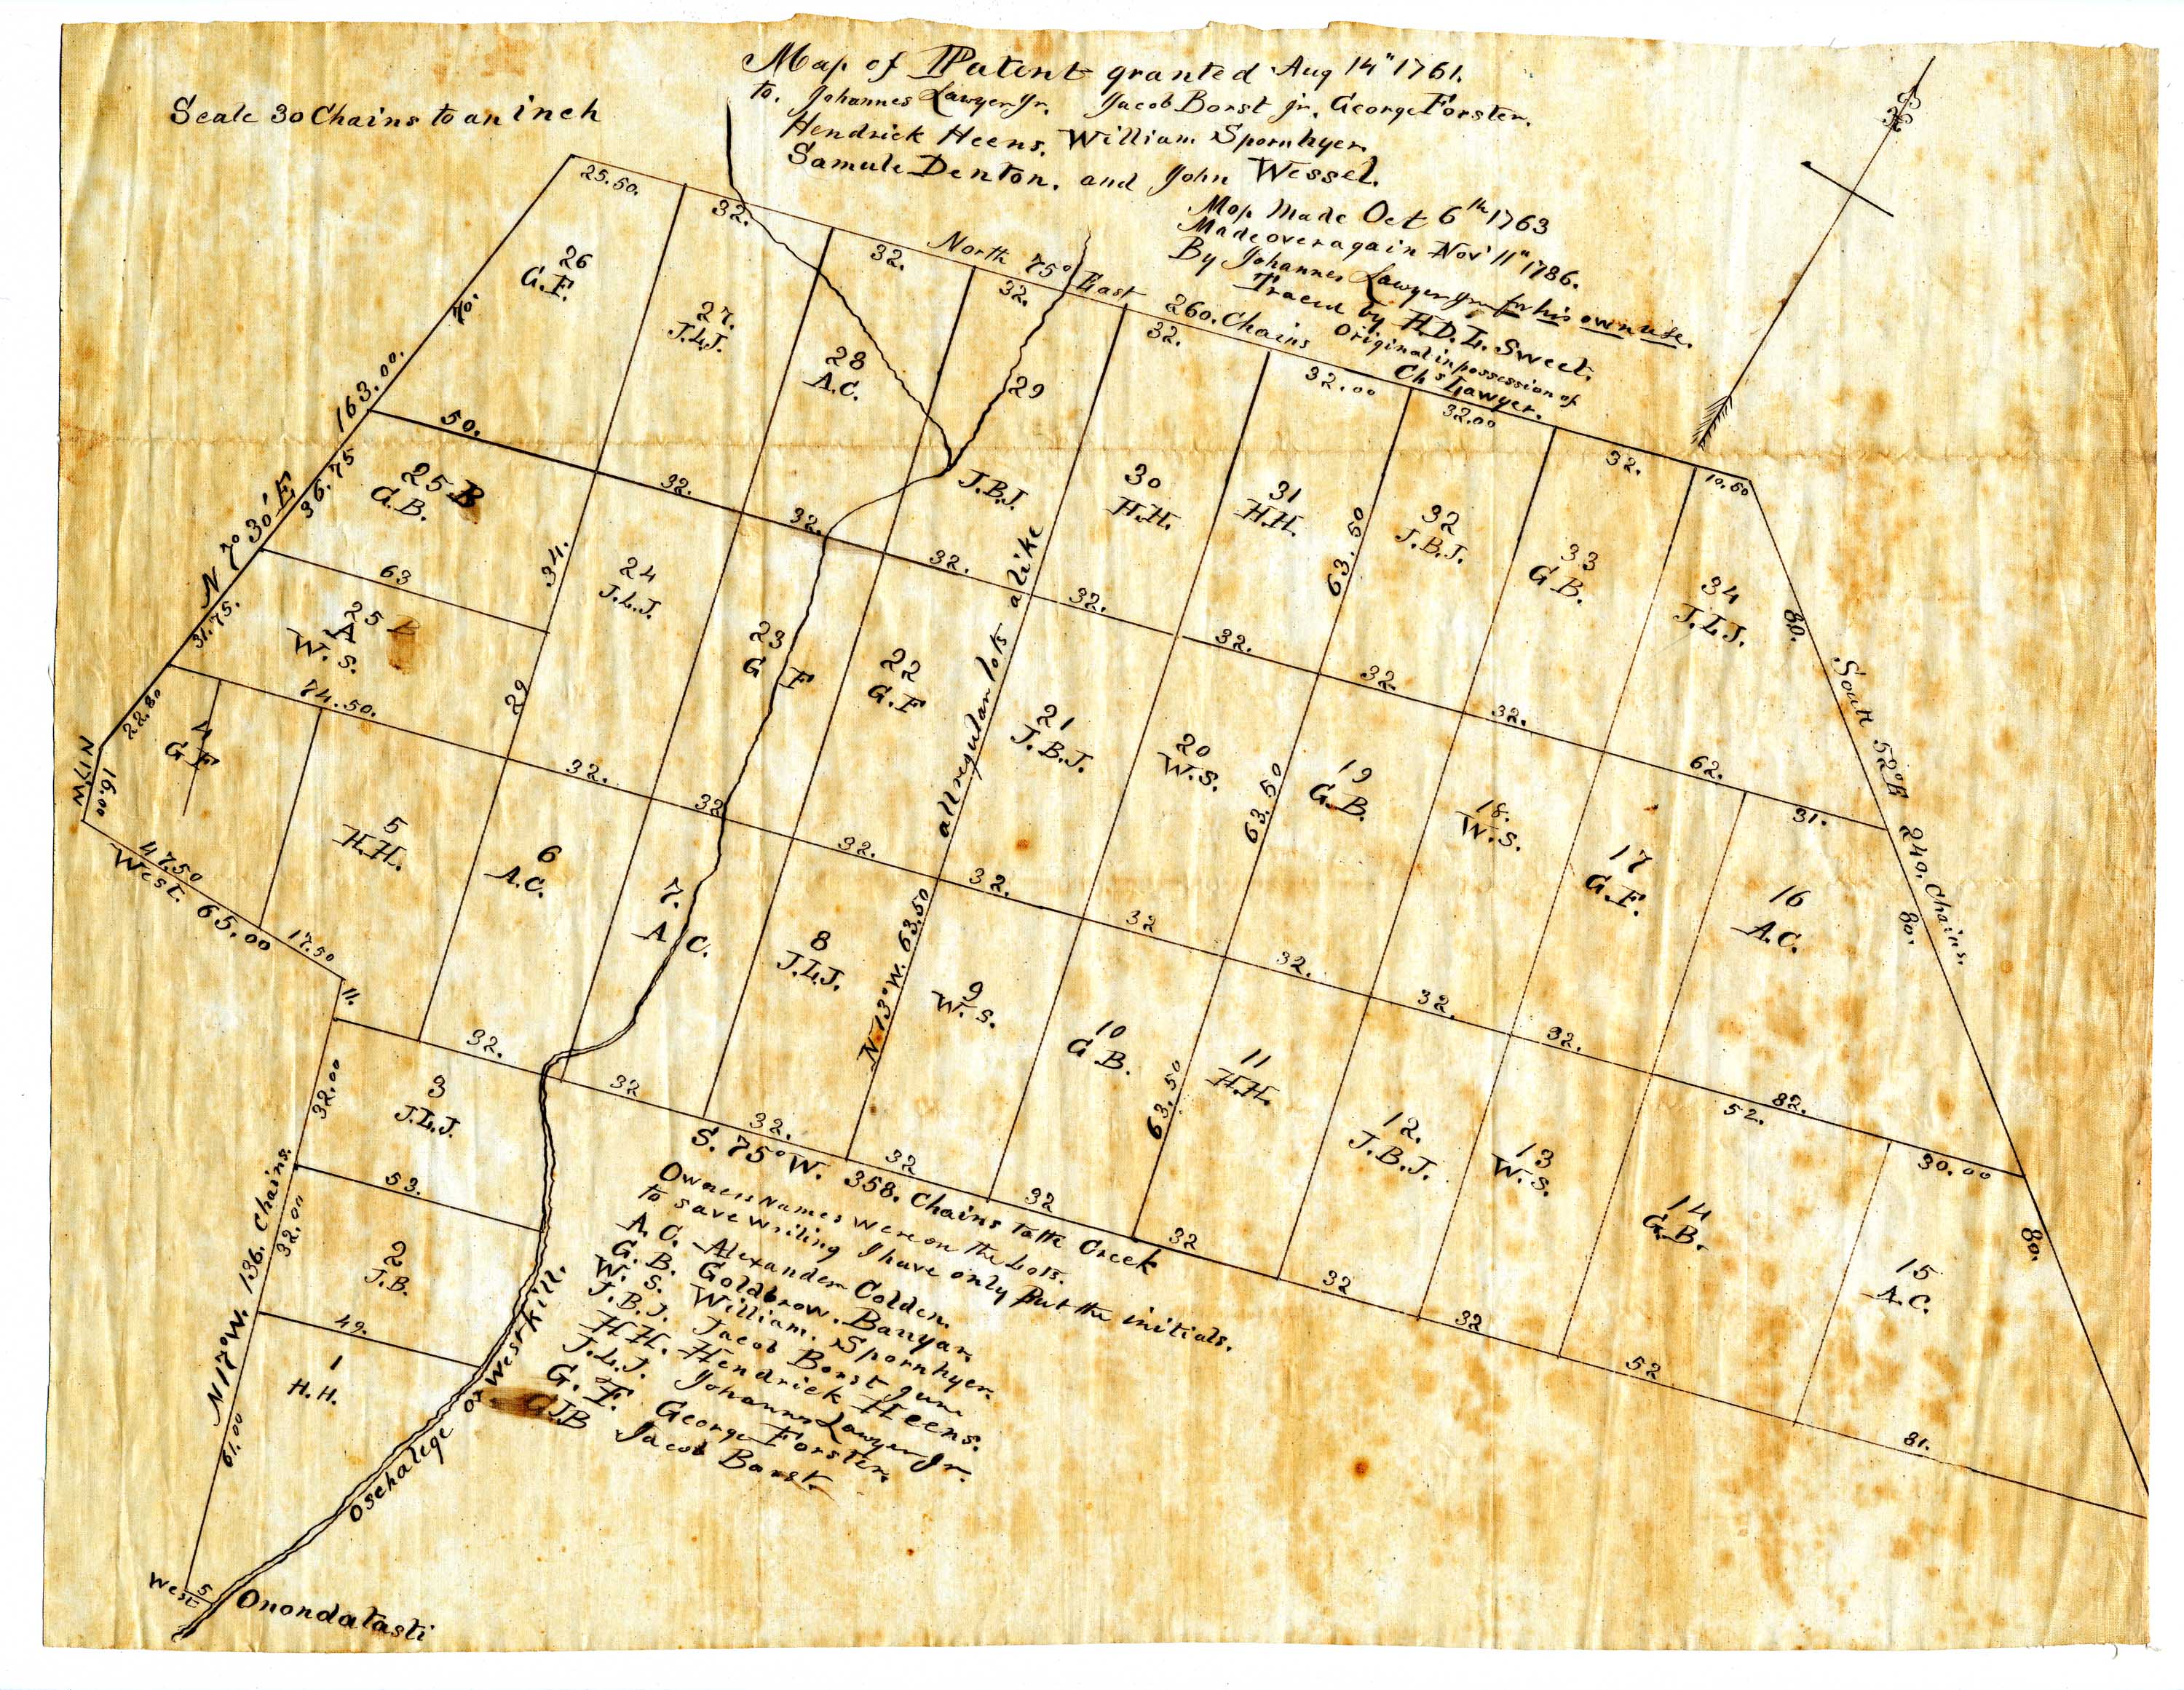 Scale 30 Chains to an inch
Map of Patent granted Aug 14" 1761.
to. Johannes Lawyer Jr. Jacob Borst Jr. George Forster.
Hendrick Heens. William Spornhyer.
Samule Denton. and John Wessel.
Map Made Oct 6th 1763
Made over again Nov' 11" 1786.
By Johannes Lawyer Jun for his own use.
Traced by H.D.L. Sweet.
Original in possession of
Chs Lawyer.
North 75° East 260. Chains
25.50. 32. 32. 32. 32. 32.00 32.00 32. 10.50
26
G.F.
27.
J.L.J.
28
A.C.
29
J.B.J.
30
H.H.
31
H.H.
32
J.B.J.
33
G.B.
34
J.L.J.
70.
163.00.
N 7° 30' E
36.75
31.75.
22.80
50. 32. 32. 32. 32. 32. 32. 32. 62. 31.
63.50
25 B
G.B.
63
25 B
A
W.S.
34.
29
24
J.L.J.
23
G F
22
G.F
all regular lots alike
21
J.B.J.
20
W.S.
63.50
19
G.B.
18.
W.S.
17
G.F.
16
A.C.
80.
South 52° E 240. Chains.
80.
80.
74.50. 32. 32 32. 32. 32 32. 32. 32. 82. 30.00
52.
N17W
16.00
4
G F
5
H.H.
6
A.C.
7.
A C.
8
J.L.J.
N 13° W. 63.50
9
W.S.
10
G.B.
63.50
11
H.H.
12.
J.B.J.
13
W.S.
14
G.B.
15
A.C.
47.50
West. 65.00
17.50
11.
32. 32 32. 32 32 32 32 32 52 81.
S. 75° W. 358. Chains to the Creek
32.00
3
J.L.J.
53.
32.00
2
J.B.
49.
1
H.H.
61.00
N 17° W. 136. Chains.
Owners Names were on the Lots.
to save writing I have only Put the initials.
A. C. Alexander Colden.
G. B. Goldbrow. Banyar.
W. S. William. Spornhyer.
J. B. J. Jacob Borst Jun.
H H. Hendrick Heens.
J. L. J. Johannes Lawyer Jr.
G. F. George Forster.
J B Jacob Borst.
Oschalege or West Kill.
West 5
Onondatasti